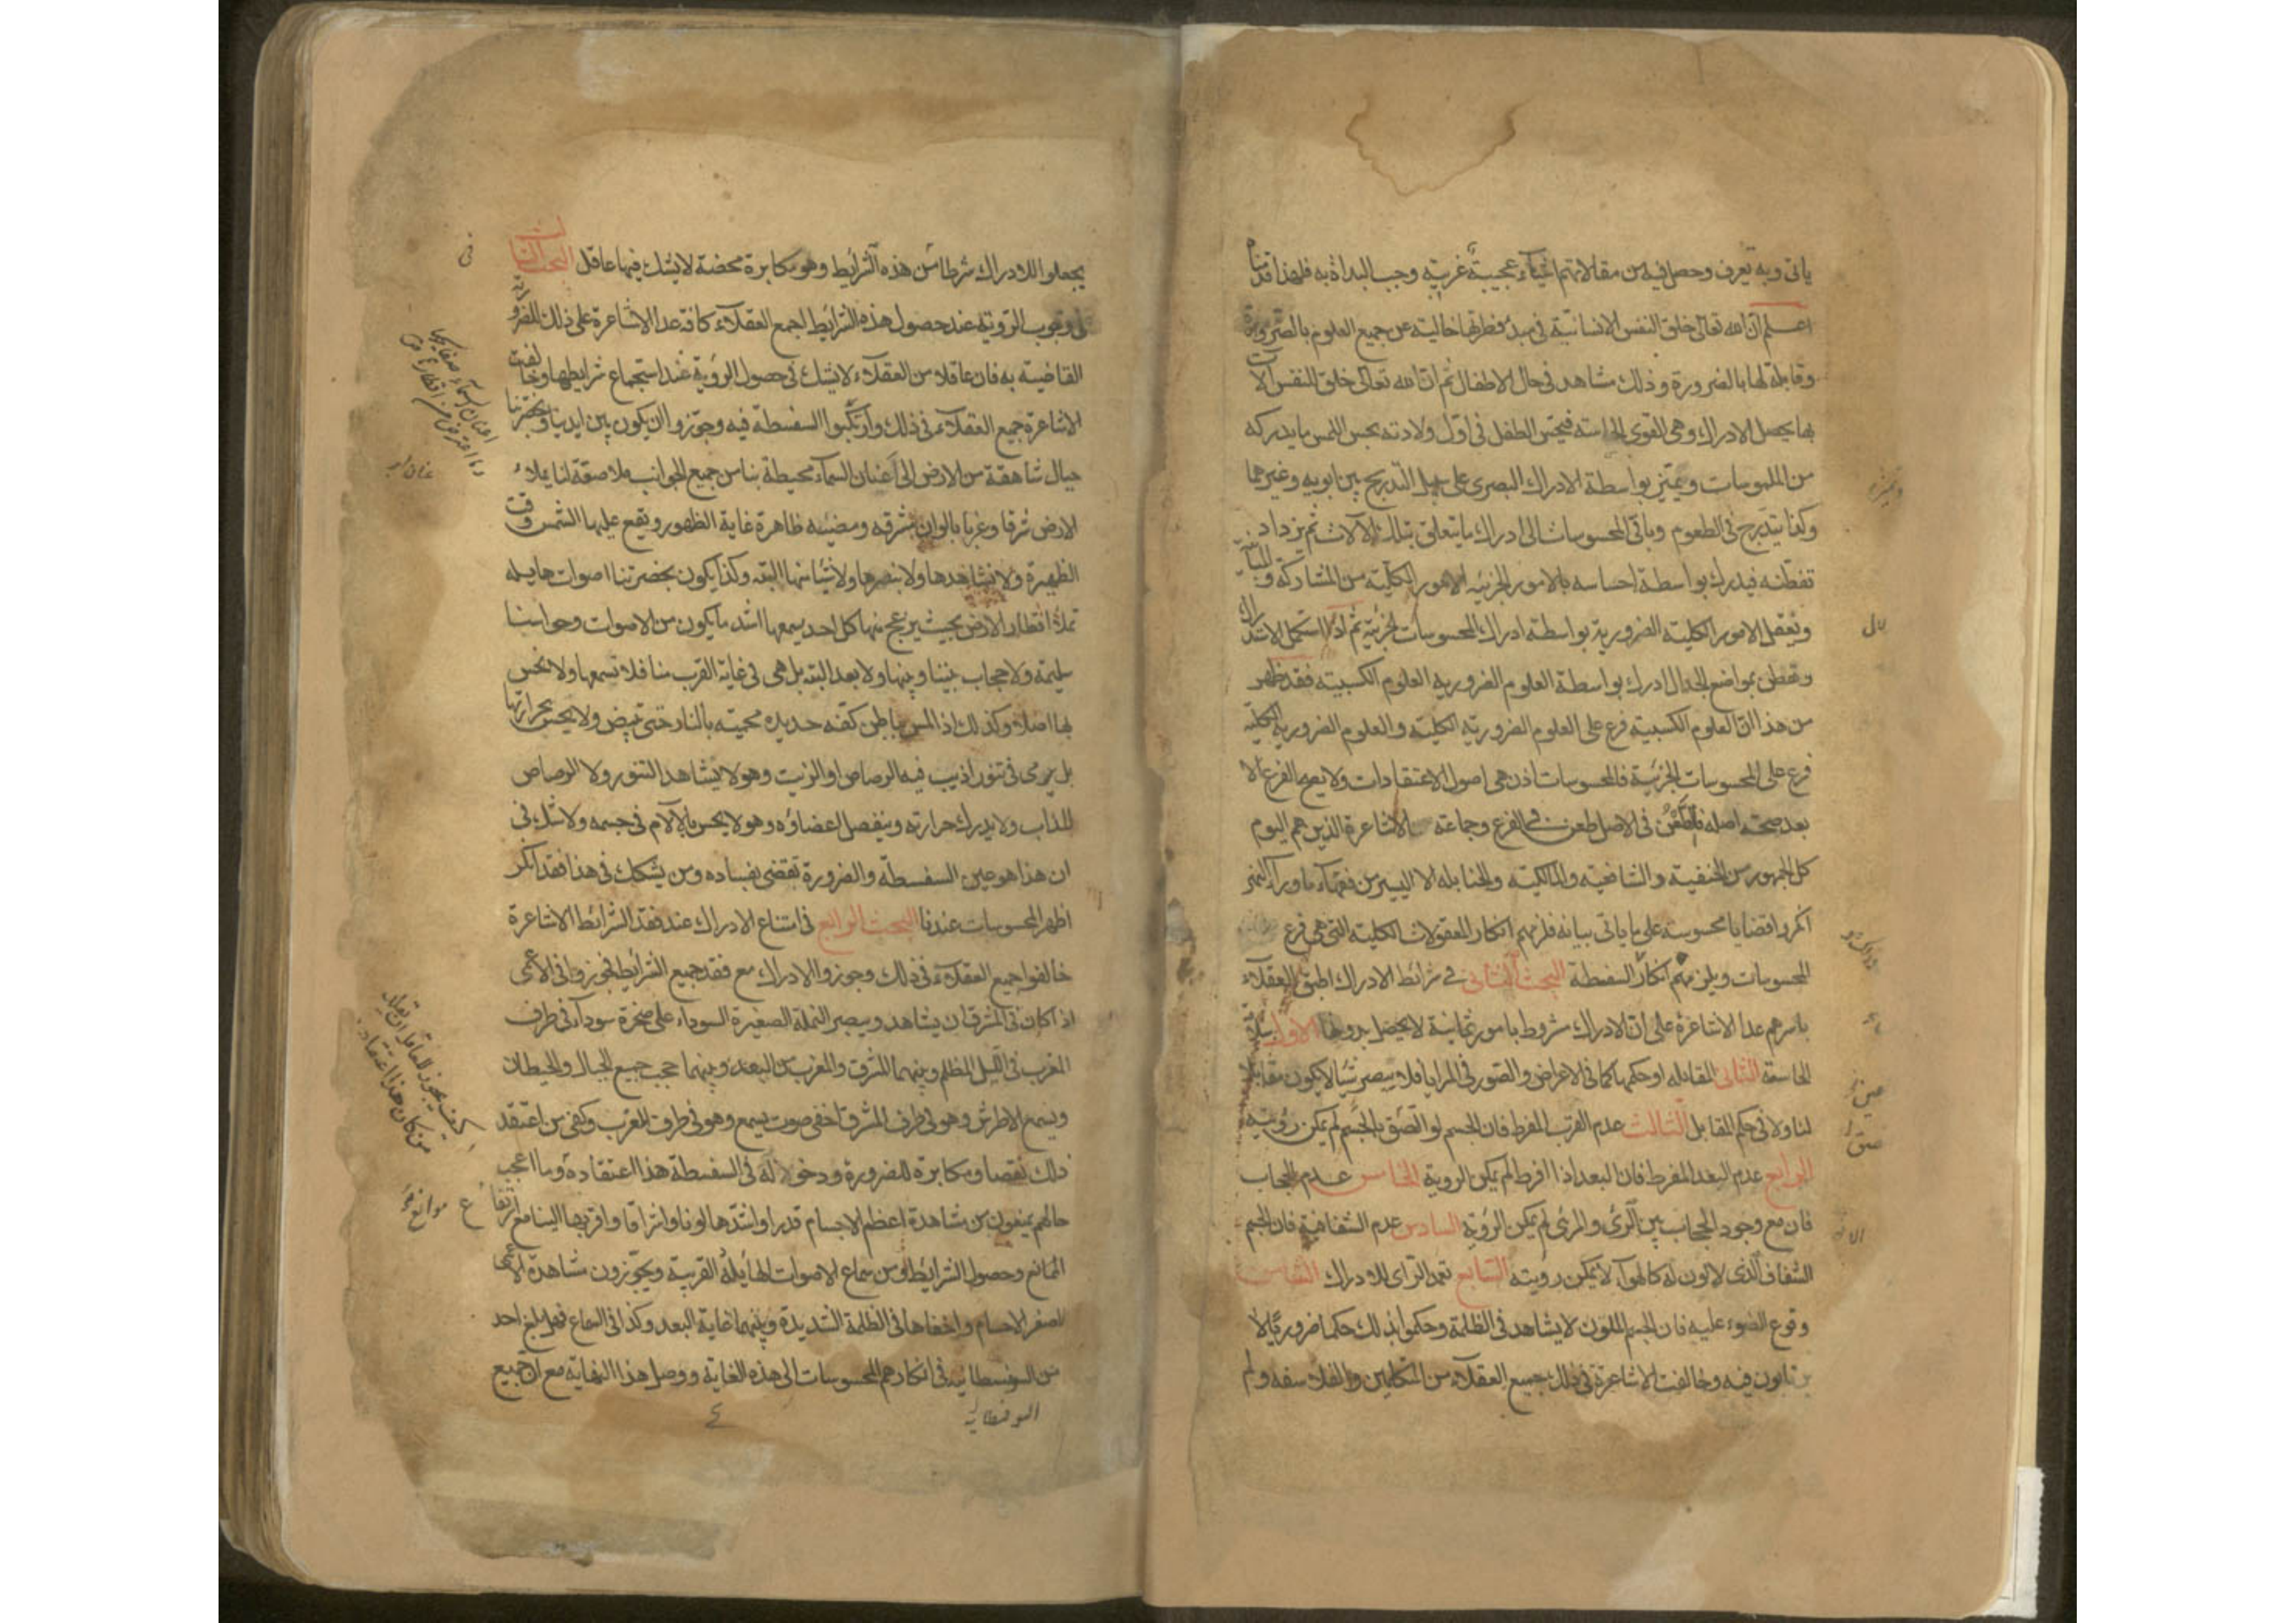 ياتى وبه يعرف وحصل فيه من مقالاتهم اشياء عجيبة غريبة وجب البداة به فلهذا قدمناه
اعلم ان الله تعالى خلق النفس الانسانية فى مبدء فطرتها خالية عن جميع العلوم بالضرورة
وقابلة لها بالضرورة وذلك مشاهد فى حال الاطفال ثم ان الله تعالى خلق للنفس الآلات
بها يحصل الادراك وهى القوى الحاسة فيحس الطفل فى اول ولادته بحس اللمس ما يدركه
من الملموسات ويميز بواسطة الادراك البصرى على سبيل التدريج بين ابويه وغيرهما
وكذا يتدرج فى الطعوم وباقى المحسوسات الى ادراك ما يتعلق بتلك الآلات ثم يزداد
تفطنه فيدرك بواسطة احساسه بالامور الجزئيه الامور الكلية من المشاركة والمباينة
ويعقل الامور الكلية الضرورية بواسطة ادراك المحسوسات الجزئية ثم اذا استكمل الاستدلال
وتفطن بمواضع الجدال ادرك بواسطة العلوم الضروريه العلوم الكسبيته فقد ظهر
من هذا ان العلوم الكسبية فرع على العلوم الضرورية الكلية والعلوم الضرورية الكلية
فرع على المحسوسات الجزئية فالمحسوسات اذن هى اصول الاعتقادات ولا يصح الفرع الا
بعد صحة اصله فالطعن فى الاصل طعن فى الفرع وجماعة الاشاعرة الذين هم اليوم
كل الجمهور من الحنفية والشافعية والمالكية والحنابله الا اليسير من فقهاء ماوراء النهر
انكروا قضايا محسوسة على ما ياتى بيانه فلزمهم انكار المعقولات الكلية التى هى فرع
المحسوسات ويلزمهم انكار السفسطة البحث الثانى فى شرائط الادراك اطبق العقلاء
باسرهم عدا الاشاعرة على ان الادراك مشروط بامور ثمانية لا يحصل بدونها الاول سلامة
الحاسة الثانى المقابله او حكمها كما فى الاعراض والصور فى المرايا فلا يبصر شيئا لا يكون مقابلا
لنا ولا فى حكم المقابل الثالث عدم القرب المفرط فان الجسم لو التصق بالجسم لم يكن رؤيته
الرابع عدم البعد المفرط فان البعد اذا افرط لم يكن الروية الخامس عدم الحجاب
فان مع وجود الحجاب بين الرئى والمرئى لم يكن الرؤية السادس عدم الشفافية فان الجسم
الشفاف الذى لا لون له كالهواء لا يمكن رويته السابع تعمد الرائى للادراك الثامن
وقوع الضوء عليه فان الجسم الملون لا يشاهد فى الظلمة وحكموا بذلك حكما ضروريا لا
يرتابون فيه وخالفت الاشاعرة فى ذلك جميع العقلاء من المتكلمين والفلاسفه ولم
يجعلوا للادراك شرطا من هذه الشرايط وهو مكابرة محضة لا يشك فيها عاقل البحث الثالث
فى وجوب الروية عند حصول هذه الشرايط اجمع العقلاء كافة عدا الاشاعرة على ذلك للضرورة
القاضية به فان عاقلا من العقلاء لا يشك فى حصول الرؤية عند استجماع شرايطها وخالفت
الاشاعرة جميع العقلاء فى ذلك وارتكبوا السفسطه فيه وجوزوا ان يكون بين ايدينا وبحضرتنا
جبال شاهقة من الارض الى اعنان السماء محيطة بنا من جميع الجوانب ملاصقة لنا يملاء
الارض شرقا وغربا بالوان مشرقه ومضيئه ظاهرة غاية الظهور ويقع عليها الشمس وقت
الظهيرة ولا نشاهدها ولا نبصرها ولا شيئا منها البته وكذا يكون بحضرتنا اصوات هايله
تملأ اقطار الارض بحيث ينزعج منها كل احد يسمعها اشد ما يكون من الاصوات وحواسنا
سليمة ولا حجاب بيننا وبينها ولا بعد البته بل هى فى غاية القرب منا فلا نسمعها ولا نحس
بها اصلا وكذلك اذا لمس بباطن كفه حديدة محمية بالنار حتى تبيض ولا يحس بحرارتها
بل يرمى فى تنور اذيب فيه الرصاص او الزيت وهو لا يشاهد التنور ولا الرصاص
المذاب ولا يدرك حرارته وينفصل اعضاؤه وهو لا يحس بالآلام فى جسمه ولا شك فى
ان هذا هو عين السفسطة والضرورة تقضى بفساده ومن يشكك فى هذا فقد انكر
اظهر المحسوسات عندنا البحث الرابع فى امتناع الادراك عند فقد الشرائط الاشاعرة
خالفوا جميع العقلاء فى ذلك وجوزوا الادراك مع فقد جميع الشرايط فجوزوا فى الاعمى
اذا كان فى المشرق ان يشاهد ويبصر النملة الصغيرة السوداء على صخرة سوداء فى طرف
المغرب فى الليل المظلم وبينهما ما بين المشرق والمغرب من البعد وبينهما حجب جميع الجبال والحيطان
ويسمع الاطرش وهو فى طرف المشرق اخفى صوت يسمع وهو فى طرف المغرب وكفى من اعتقد
ذلك نقصا ومكابرة للضرورة ودخولا له فى السفسطة هذا اعتقاده وما اعجب
حالهم يمنعون من مشاهدة اعظم الاجسام قدرا واشدها لونا واشراقا واقربها الينا مع ارتفاع
الموانع وحصول الشرايط ومن سماع الاصوات الهايلة القريبة ويجوزون مشاهدة الاعمى
لاصغر الاجسام واخفاها فى الظلمة الشديدة وبينهما غاية البعد وكذا فى السماع فهل بلغ احد
من السوفسطائية فى انكارهم المحسوسات الى هذه الغاية ووصل هذا النهاية مع ان جميع
السوفسطائية